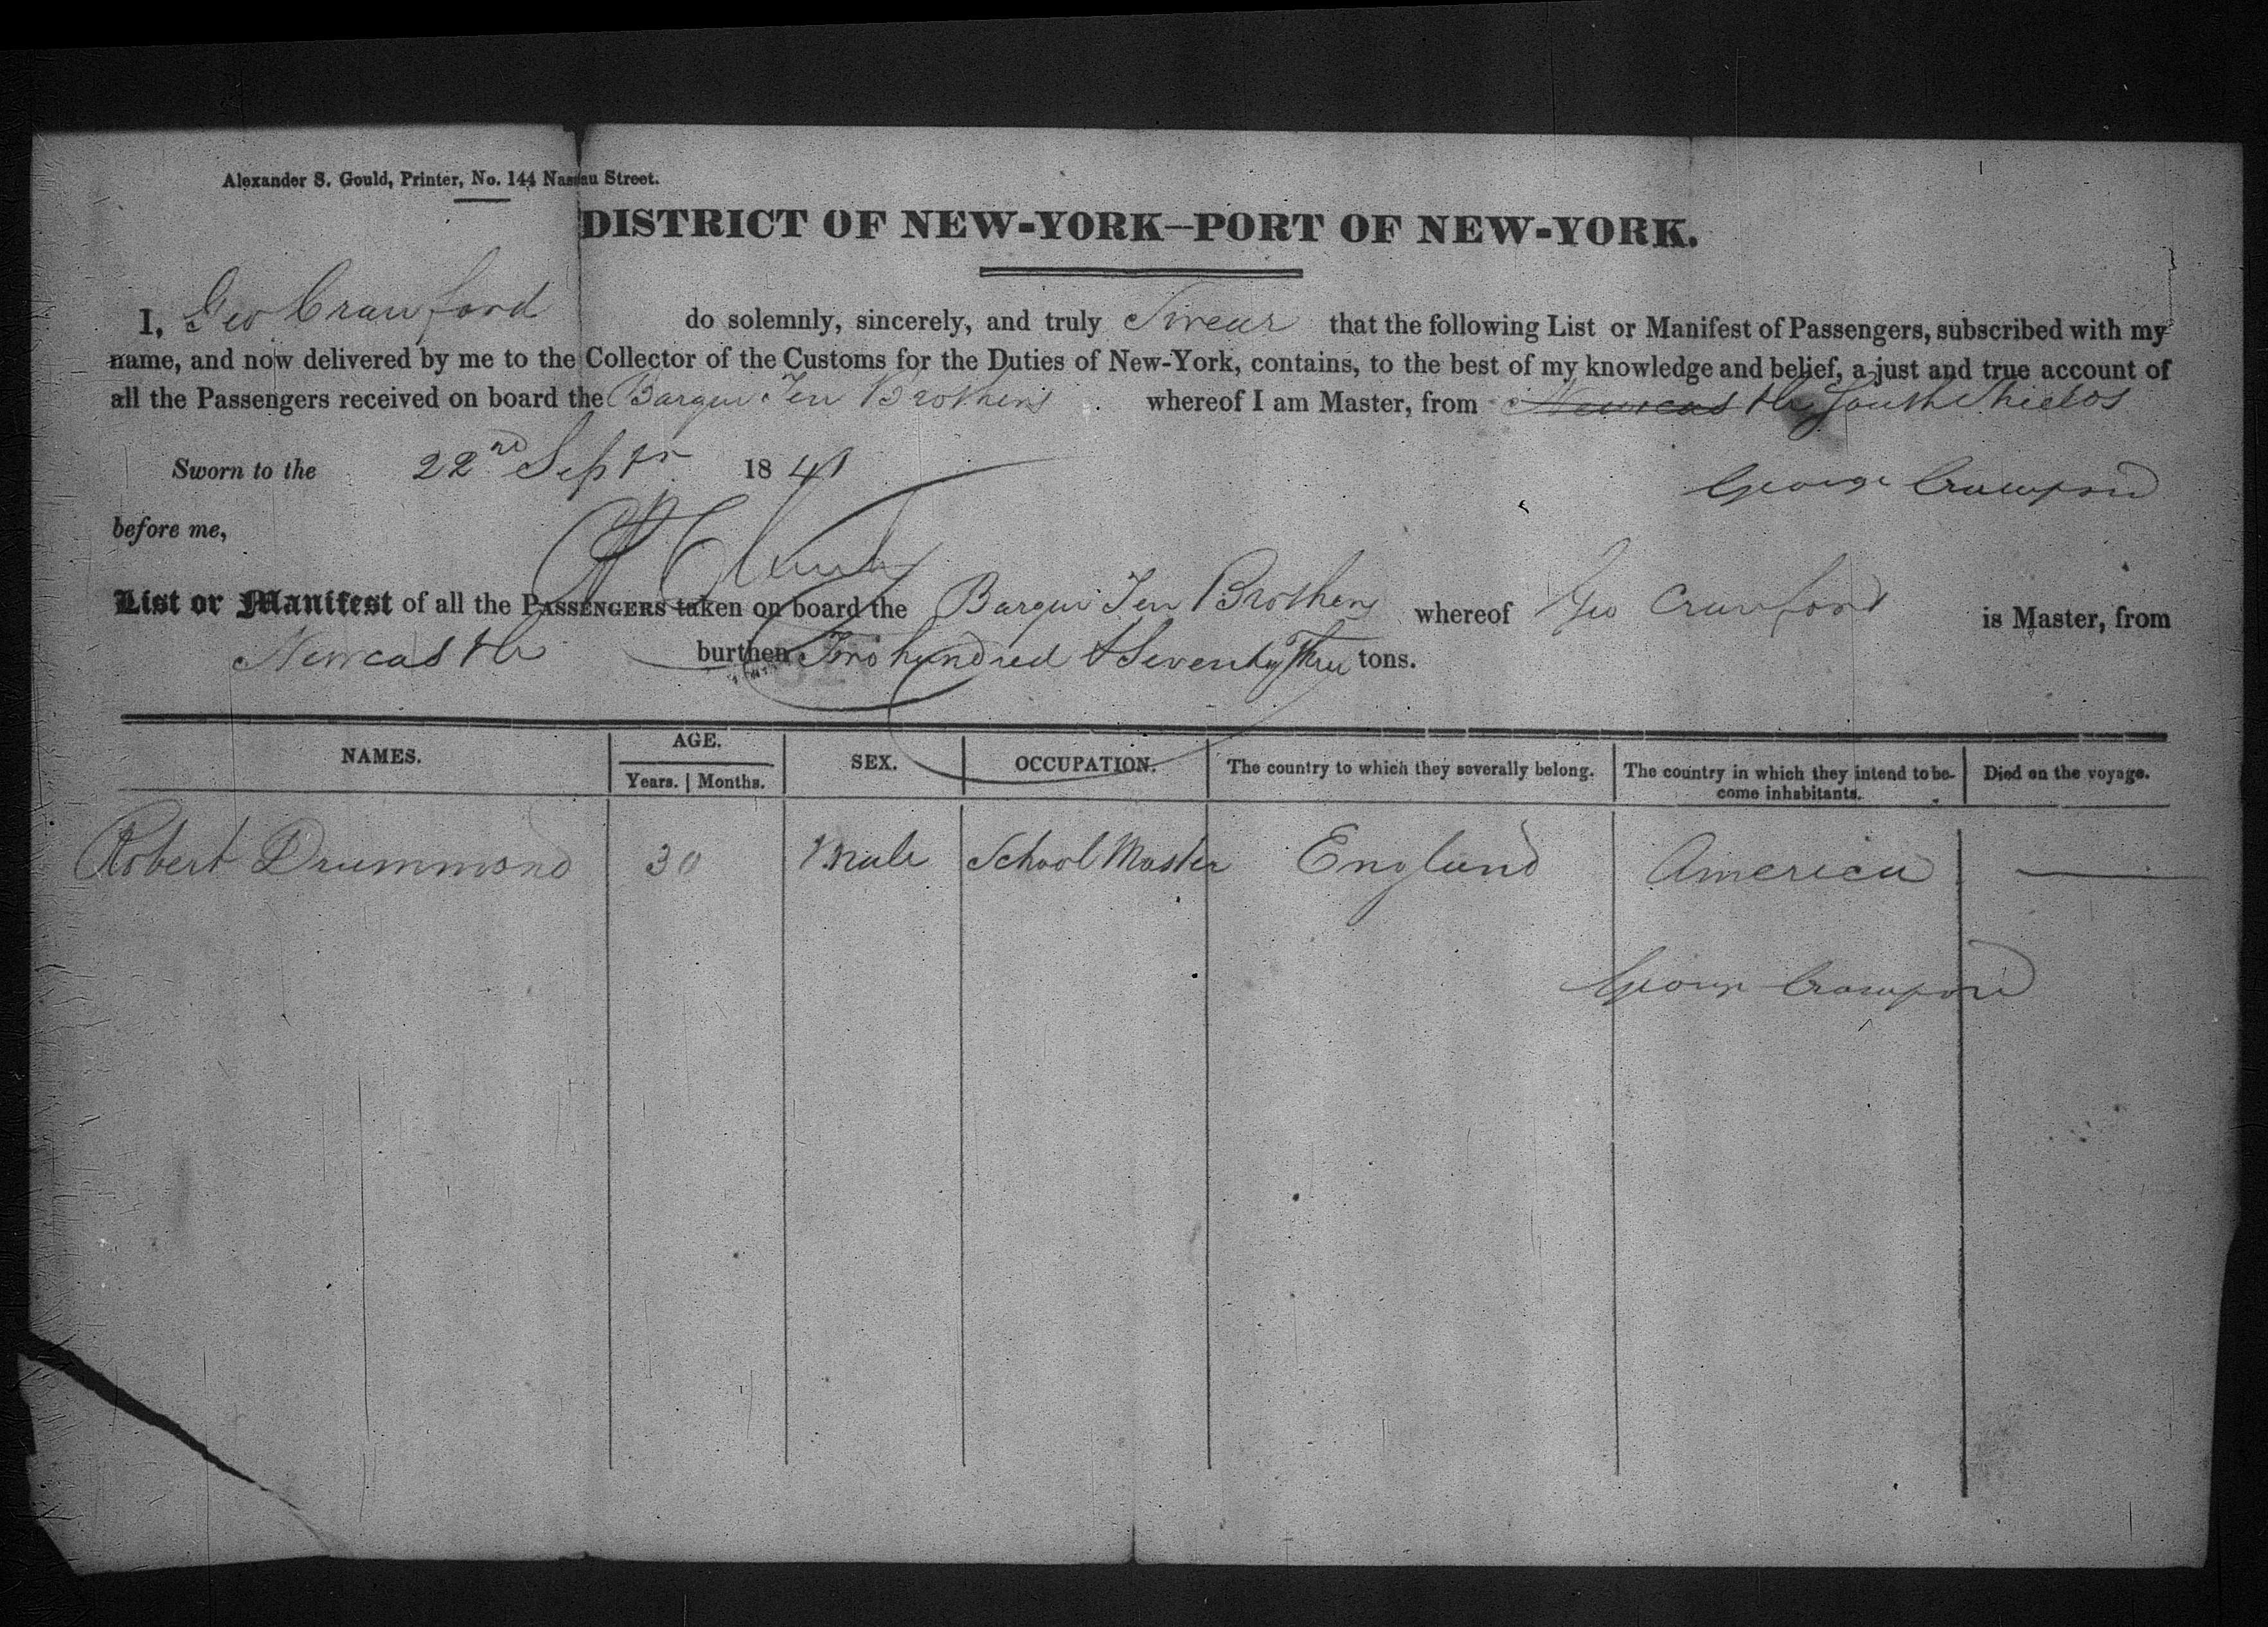 Alexander S. Gould, Printer, No. 144 Nassau Street.
DISTRICT OF NEW-YORK—PORT OF NEW-YORK.
I, Geo Crawford do solemnly, sincerely, and truly Swear that the following List or Manifest of Passengers, subscribed with my
name, and now delivered by me to the Collector of the Customs for the Duties of New-York, contains, to the best of my knowledge and belief, a just and true account of
all the Passengers received on board the Barque Ten Brothers whereof I am Master, from Newcastle South Shields
Sworn to the 22nd Septr 1841 George Crawford
before me,
List or Manifest of all the PASSENGERS taken on board the Barque Ten Brothers whereof Geo Crawford is Master, from
Newcastle burthen Two hundred & Seventy Three tons.
NAMES. AGE. Years. | Months. SEX. OCCUPATION. The country to which they severally belong. The country in which they intend to be-come inhabitants. Died on the voyage.
Robert Drummond 30 Male School Master England America —
George Crawford